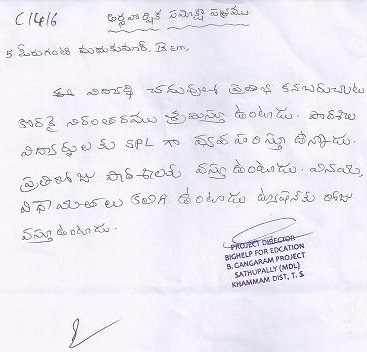 C1416
అర్ధవార్షిక సమీక్షా పత్రము
5. ఓరుగంటి మధుకుమార్, Bcm,
ఈ విద్యార్థి చదువులో ప్రతిభ కనబరుచుట
కొరకై నిరంతరము శ్రమిస్తూ ఉంటాడు. పాఠశాల
విద్యార్థులకు SPL గా వ్యవహరిస్తూ ఉన్నాడు.
ప్రతిరోజు పాఠశాలకు వస్తూ ఉంటాడు. వినయ,
విధేయతలు కలిగి ఉంటాడు ట్యూషన్‌కు రోజు
వస్తూ ఉంటాడు.
PROJECT DIRECTOR
BIGHELP FOR EDCATION
B. GANGARAM PROJECT
SATHUPALLY (MDL)
KHAMMAM DIST, T. S